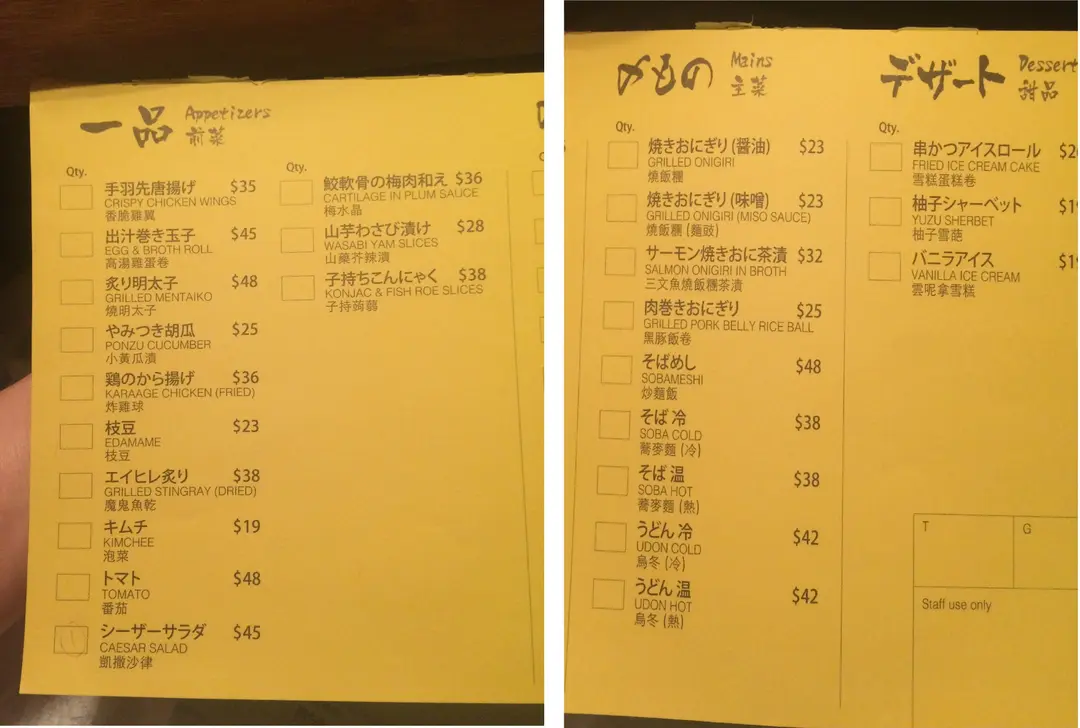 一品 Appetizers
前菜
Qty.
手羽先唐揚げ $35
CRISPY CHICKEN WINGS
香脆雞翼
出汁巻き玉子 $45
EGG & BROTH ROLL
高湯雞蛋卷
炙り明太子 $48
GRILLED MENTAIKO
燒明太子
やみつき胡瓜 $25
PONZU CUCUMBER
小黃瓜漬
鶏のから揚げ $36
KARAAGE CHICKEN (FRIED)
炸雞球
枝豆 $23
EDAMAME
枝豆
エイヒレ炙り $38
GRILLED STINGRAY (DRIED)
魔鬼魚乾
キムチ $19
KIMCHEE
泡菜
トマト $48
TOMATO
番茄
シーザーサラダ $45
CAESAR SALAD
凱撒沙律
Qty.
鮫軟骨の梅肉和え $36
CARTILAGE IN PLUM SAUCE
梅水晶
山芋わさび漬け $28
WASABI YAM SLICES
山藥芥辣漬
子持ちこんにゃく $38
KONJAC & FISH ROE SLICES
子持蒟蒻
〆もの Mains
主菜
Qty.
焼きおにぎり (醤油) $23
GRILLED ONIGIRI
燒飯糰
焼きおにぎり (味噌) $23
GRILLED ONIGIRI (MISO SAUCE)
燒飯糰 (麵豉)
サーモン焼きおに茶漬 $32
SALMON ONIGIRI IN BROTH
三文魚燒飯糰茶漬
肉巻きおにぎり $25
GRILLED PORK BELLY RICE BALL
黑豚飯卷
そばめし $48
SOBAMESHI
炒麵飯
そば 冷 $38
SOBA COLD
蕎麥麵 (冷)
そば 温 $38
SOBA HOT
蕎麥麵 (熱)
うどん 冷 $42
UDON COLD
烏冬 (冷)
うどん 温 $42
UDON HOT
烏冬 (熱)
デザート Dessert
甜品
Qty.
串かつアイスロール
FRIED ICE CREAM CAKE
雪糕蛋糕卷
柚子シャーベット
YUZU SHERBET
柚子雪葩
バニラアイス
VANILLA ICE CREAM
雲呢拿雪糕
T G
Staff use only